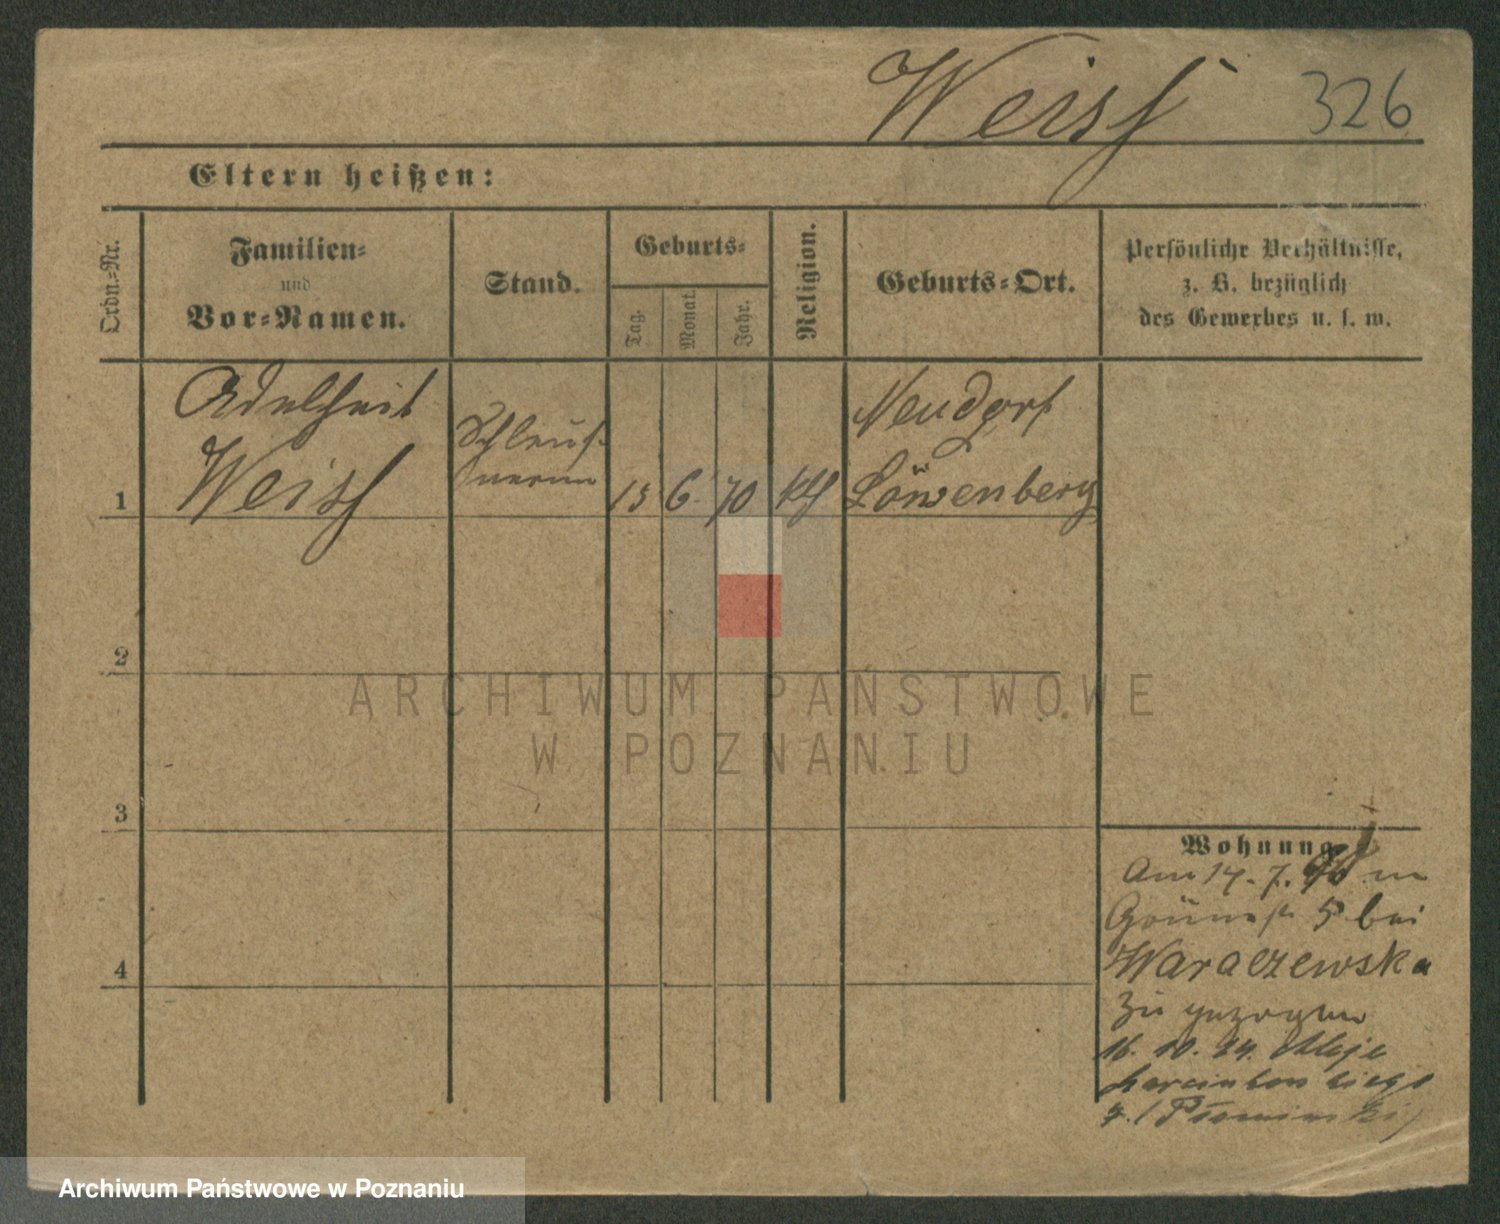 Weiss 326
Eltern heißen:
Ordn.-Nr.
Familien-
und
Vor-Namen.
Stand.
Geburts-
Tag.
Monat.
Jahr.
Religion.
Geburts-Ort.
Persönliche Verhältnisse,
z. B. bezüglich
des Gewerbes u. s. w.
1
Adelheit
Weiss
15 6. 70 kth
Neudorf
Löwenberg
2
3
4
Wohnung
Am 14. 7. in
Grünestr 5 bei
Waraczewska
zu gezogen
16. 10. Aleje
Marcinkowskiego
ARCHIWUM PAŃSTWOWE
W POZNANIU
Archiwum Państwowe w Poznaniu